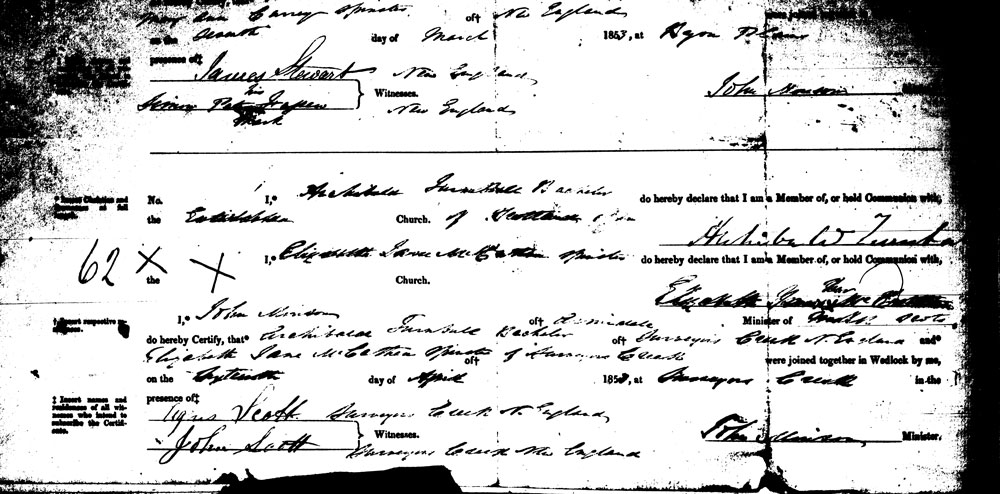 May Ann Carrey Spinster of† New England
on the day of March 1853, at
presence of‡
James Stewart New England
his
Simon Peter Witnesses. John Minson Minister.
mark New England
* Insert Christian and Surnames at full length.
No. 1 I,* Archibald Turnbull Bachelor do hereby declare that I am a Member of, or hold Communion with,
the Established Church. of Scotland
Archibald Turnbull
62 × × I,* Elizabeth Jane McCathen Spinster do hereby declare that I am a Member of, or hold Communion with,
the Church.
her
Elizabeth Jane
† Insert respective residences.
I,* John Minson of† Armidale Minister of
do hereby Certify, that* Archibald Turnbull Bachelor of† Surveyors Creek N. England and*
Elizabeth Jane McCathen Spinster of† Surveyors Creek were joined together in Wedlock by me,
on the day of April 1853, at Surveyors Creek in the
‡ Insert names and residences of all witnesses who intend to subscribe the Certificate.
presence of‡
Scott Surveyors Creek N. England
Witnesses. John Minson, Minister.
John Scott Surveyors Creek New England